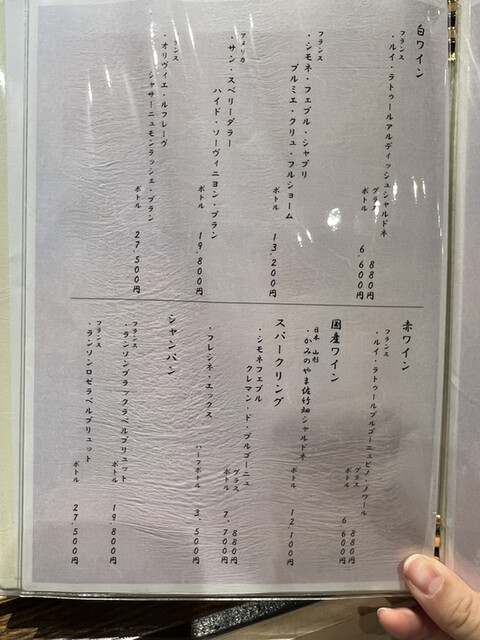 白ワイン
フランス
・ルイ・ラトゥールアルディッシュシャルドネ
グラス 880円
ボトル 6,600円
フランス
・シモネ・フェブル・シャブリ
プルミエ・クリュ・フルショーム
ボトル 13,200円
アメリカ
・サン・スペリーダラー
ハイド・ソーヴィニヨン・ブラン
ボトル 19,800円
フランス
・オリヴィエ・ルフレーヴ
シャサーニュモンラッシェ・ブラン
ボトル 27,500円
赤ワイン
フランス
・ルイ・ラトゥールブルゴーニュピノ・ノワール
グラス 880円
ボトル 6,600円
国産ワイン
日本 山形
・かみのやま佐竹畑シャルドネ
ボトル 12,100円
スパークリング
・シモネフェブル
クレマン・ド・ブルゴーニュ
グラス 880円
ボトル 7,700円
・フレシネ・エックス
ハーフボトル 3,500円
シャンパン
フランス
・ランソンブラックラベルブリュット
ボトル 19,800円
フランス
・ランソンロゼラベルブリュット
ボトル 27,500円